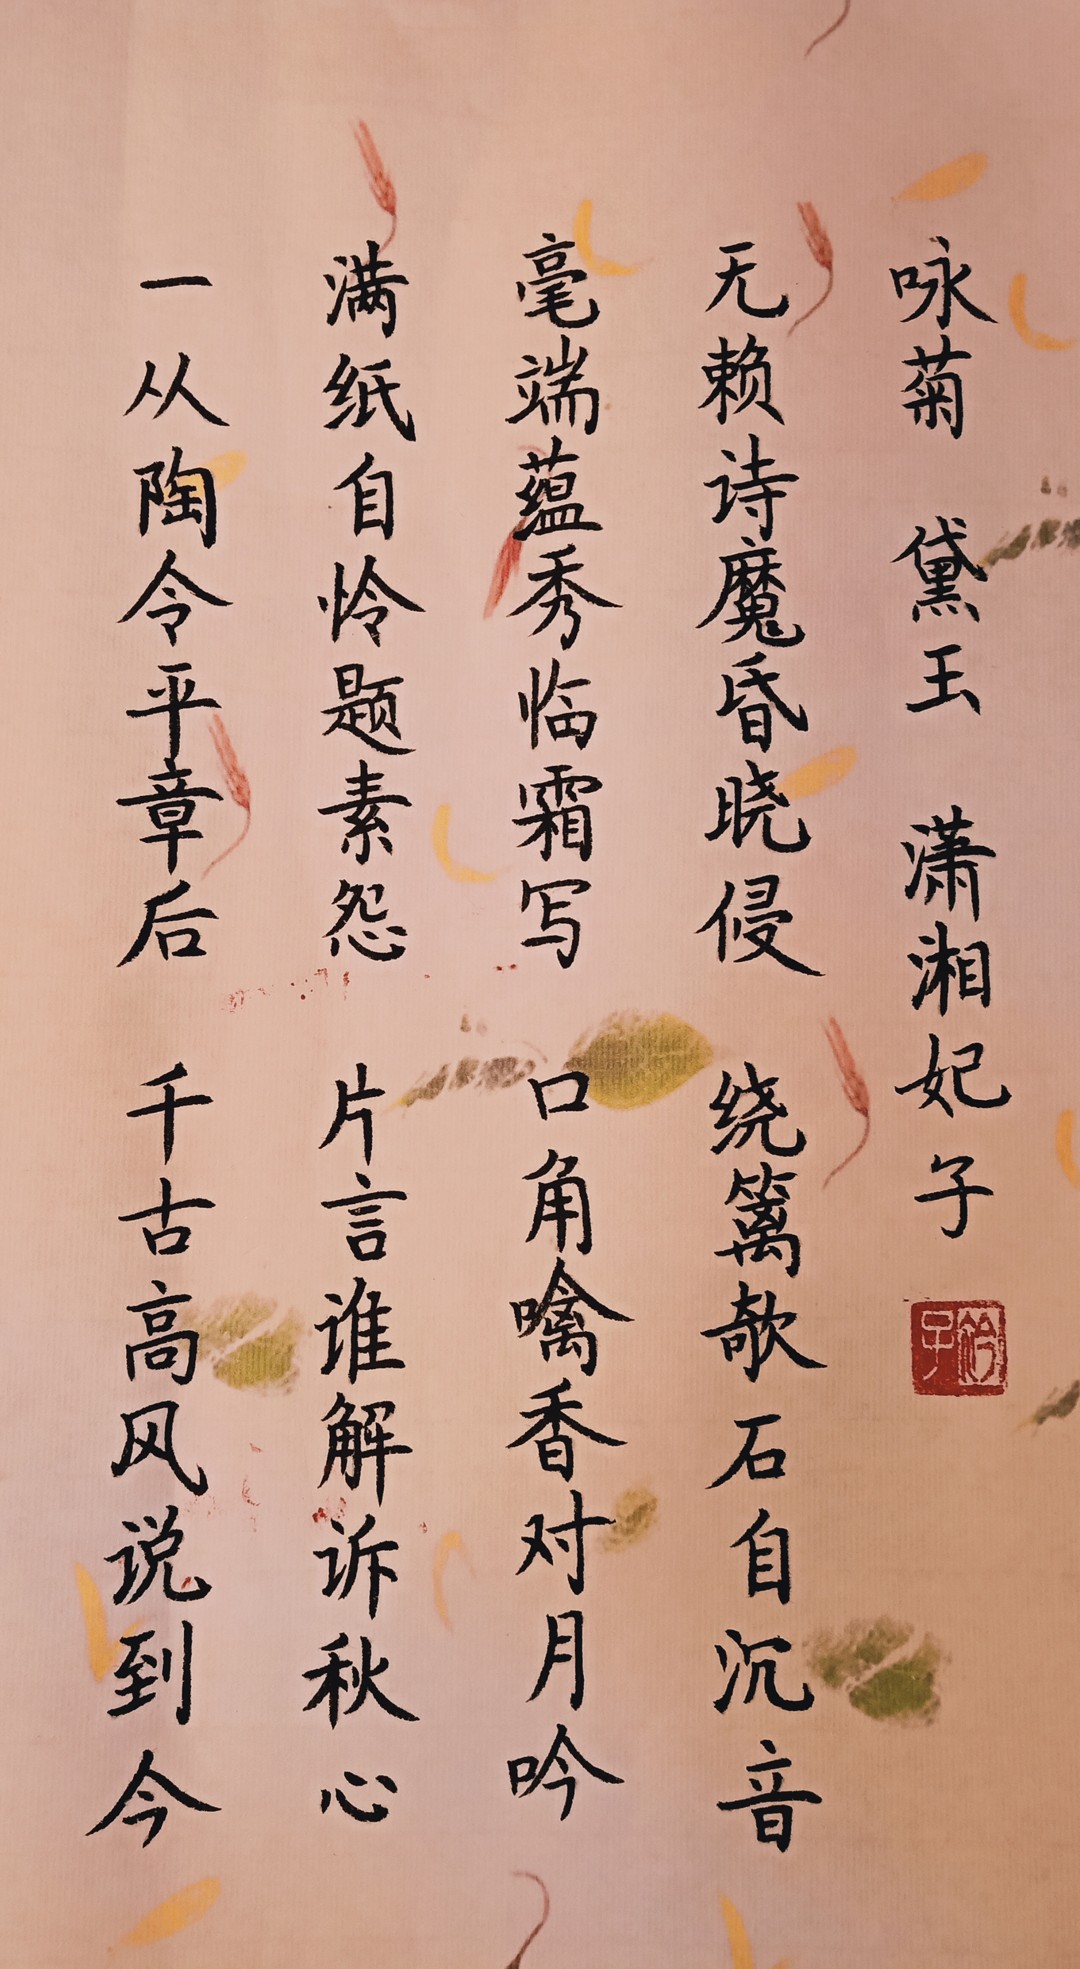 咏菊 黛玉 潇湘妃子
无赖诗魔昏晓侵 绕篱欹石自沉音
毫端蕴秀临霜写 口角噙香对月吟
满纸自怜题素怨 片言谁解诉秋心
一从陶令平章后 千古高风说到今